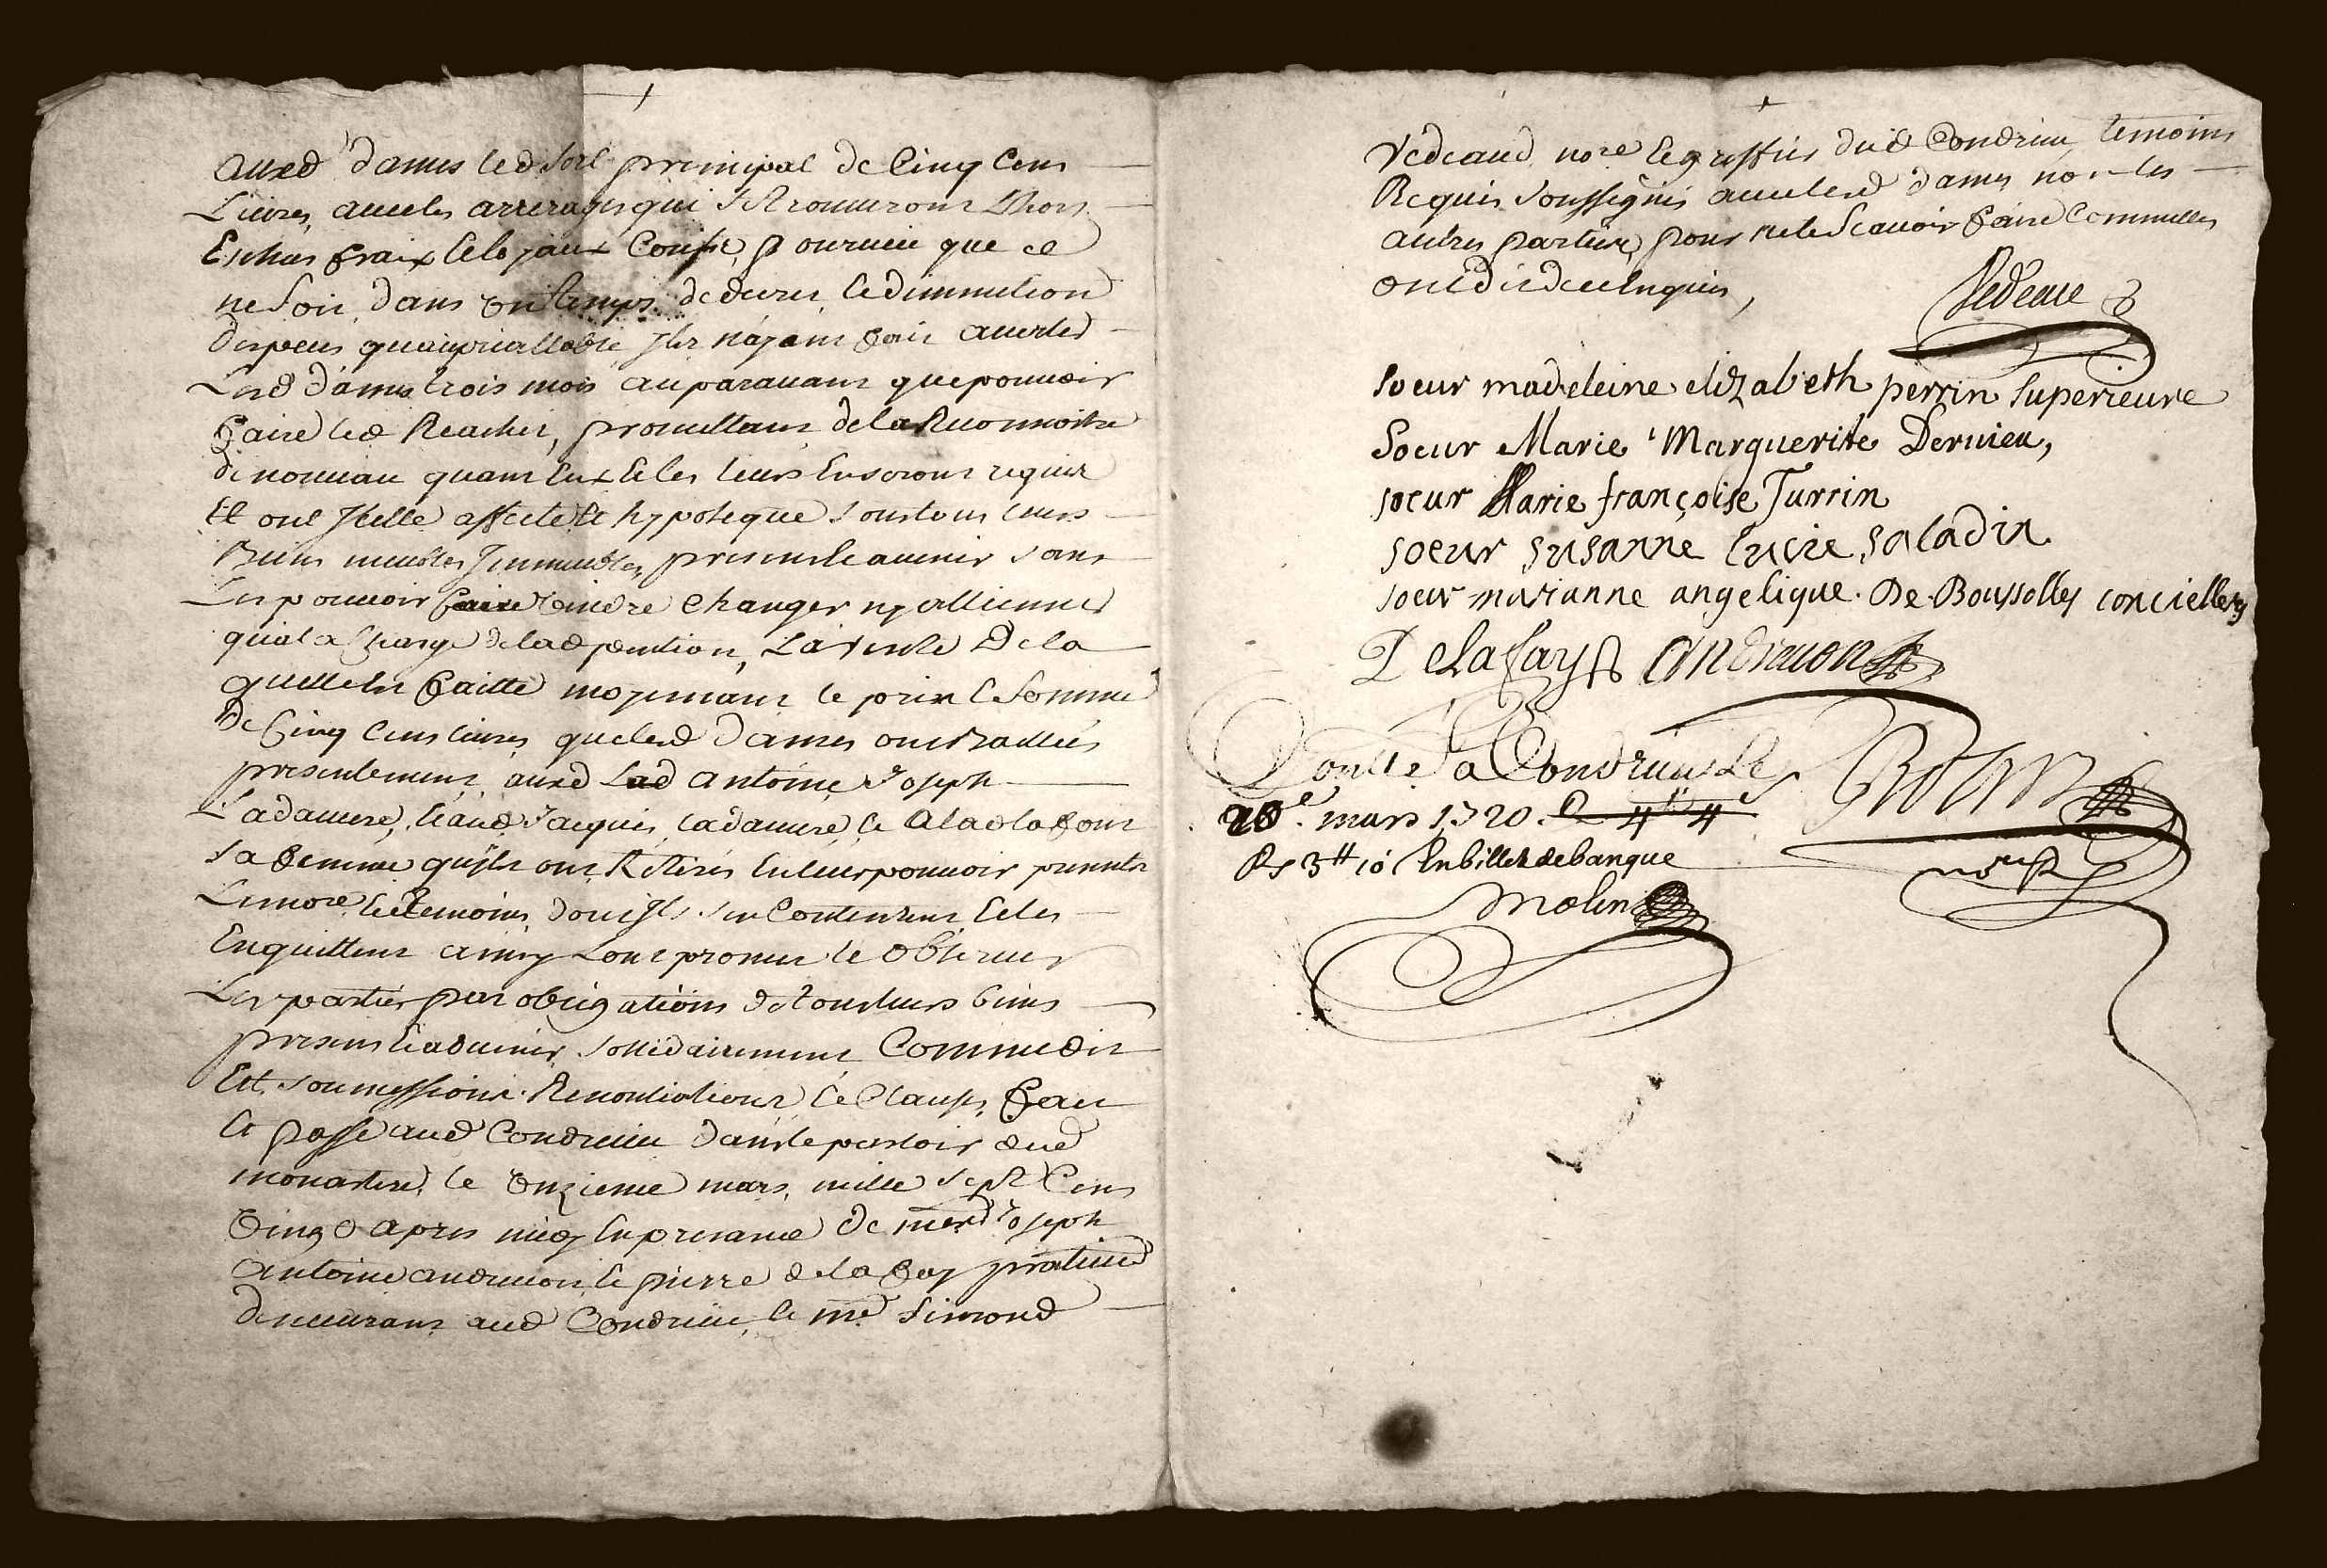 auxd dames led sort principal de Cinq Cens
Livres, avec les arrerages qui se trouveront Lhors
Eschus fraix et loyaux Couste, pourveu que ce
ne soit dans un temps de decrix et diminution
despeces quau preallable Ils nayent fait avertir
Lesd dames trois mois auparavant que pouvoir
faire led Reachet, promettant de la Reconnoitre
de nouveau quant Eux et les leurs En seront requis
Et ont Icelle affecté et hypotequé sous tous leurs
Biens meubles Immeubles, presens et avenir sans
Les pouvoir faire vendre Changer ny alliener
qual a Charge de lad pention, La vente De la
quelle est faitte moyenant le prix et Somme
de Cinq Cens livres que lesd Dames ont Baillées
presentement auxd Lad antoine Joseph
Ladaverè, et aud Jacques Ladaverè, et
sa femme quils ont Retirés En leur pouvoir present
Le nore et temoins dont Ils sen Contentent et les
En quittent ainsy Lont promis et observer
Les parties par obligations de tous leurs biens
presens et advenir sollidairement Comme dit
Est soumissions Renontiations et Clauses, fait
et passé aud Condrieu dans le parloir dud
monastere, le onzieme mars, mille sept Cens
vingt apres midy En presance de Joseph
Antoine andrevon et pierre de la fay praticiens
demeurant aud Condrieu, et me Simond
Vedeaud nore et greffier dud Condrieu temoins
Requis soussignés avec lesd dames non les
autres parties, pour ne le Scavoir faire Comme elles
ont dit de ce Enquis,
Vedeau
soeur madeleine elizabeth perrin superieure
Soeur Marie Marguerite Dervieu,
soeur Marie françoise Turrin
soeur susanne lucie saladin
soeur marianne angelique De Boussolles concielleres
Delafay andrevon
Contlle a Condrieu Le
20e mars 1720.
Rs 3tt 10 En billet de banque
Molin
nore R